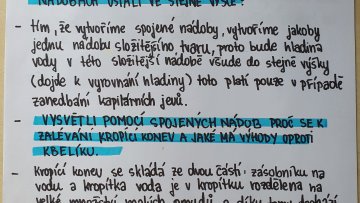 NÁDOBÁCH USTÁLÍ VE STEJNÉ VÝŠCE?
- tím, že vytvoříme spojené nádoby, vytvoříme jakoby
jednu nádobu složitějšího tvaru, proto bude hladina
vody v této složitější nádobě všude do stejné výšky
(dojde k vyrovnání hladiny) toto platí pouze v případě
zanedbání kapilárních jevů.
- VYSVĚTLI POMOCÍ SPOJENÝCH NÁDOB PROČ SE K
ZALÉVÁNÍ KROPÍCÍ KONEV A JAKÉ MÁ VÝHODY OPROTI
KBELÍKU.
- Kropící konev se skládá ze dvou částí: zásobníku na
vodu a kropítka voda je v kropítku rozdělena na
velké množství malých proudů a díky tomu dochází